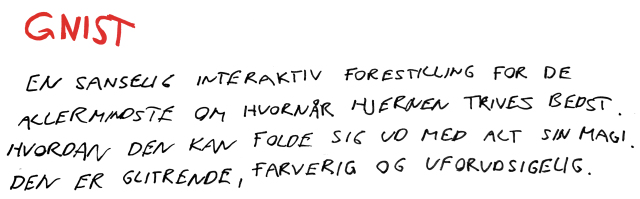 GNIST
EN SANSELIG INTERAKTIV FORESTILLING FOR DE
ALLERMINDSTE OM HVORNÅR HJERNEN TRIVES BEDST.
HVORDAN DEN KAN FOLDE SIG UD MED ALT SIN MAGI.
DEN ER GLITRENDE, FARVERIG OG UFORUDSIGELIG.